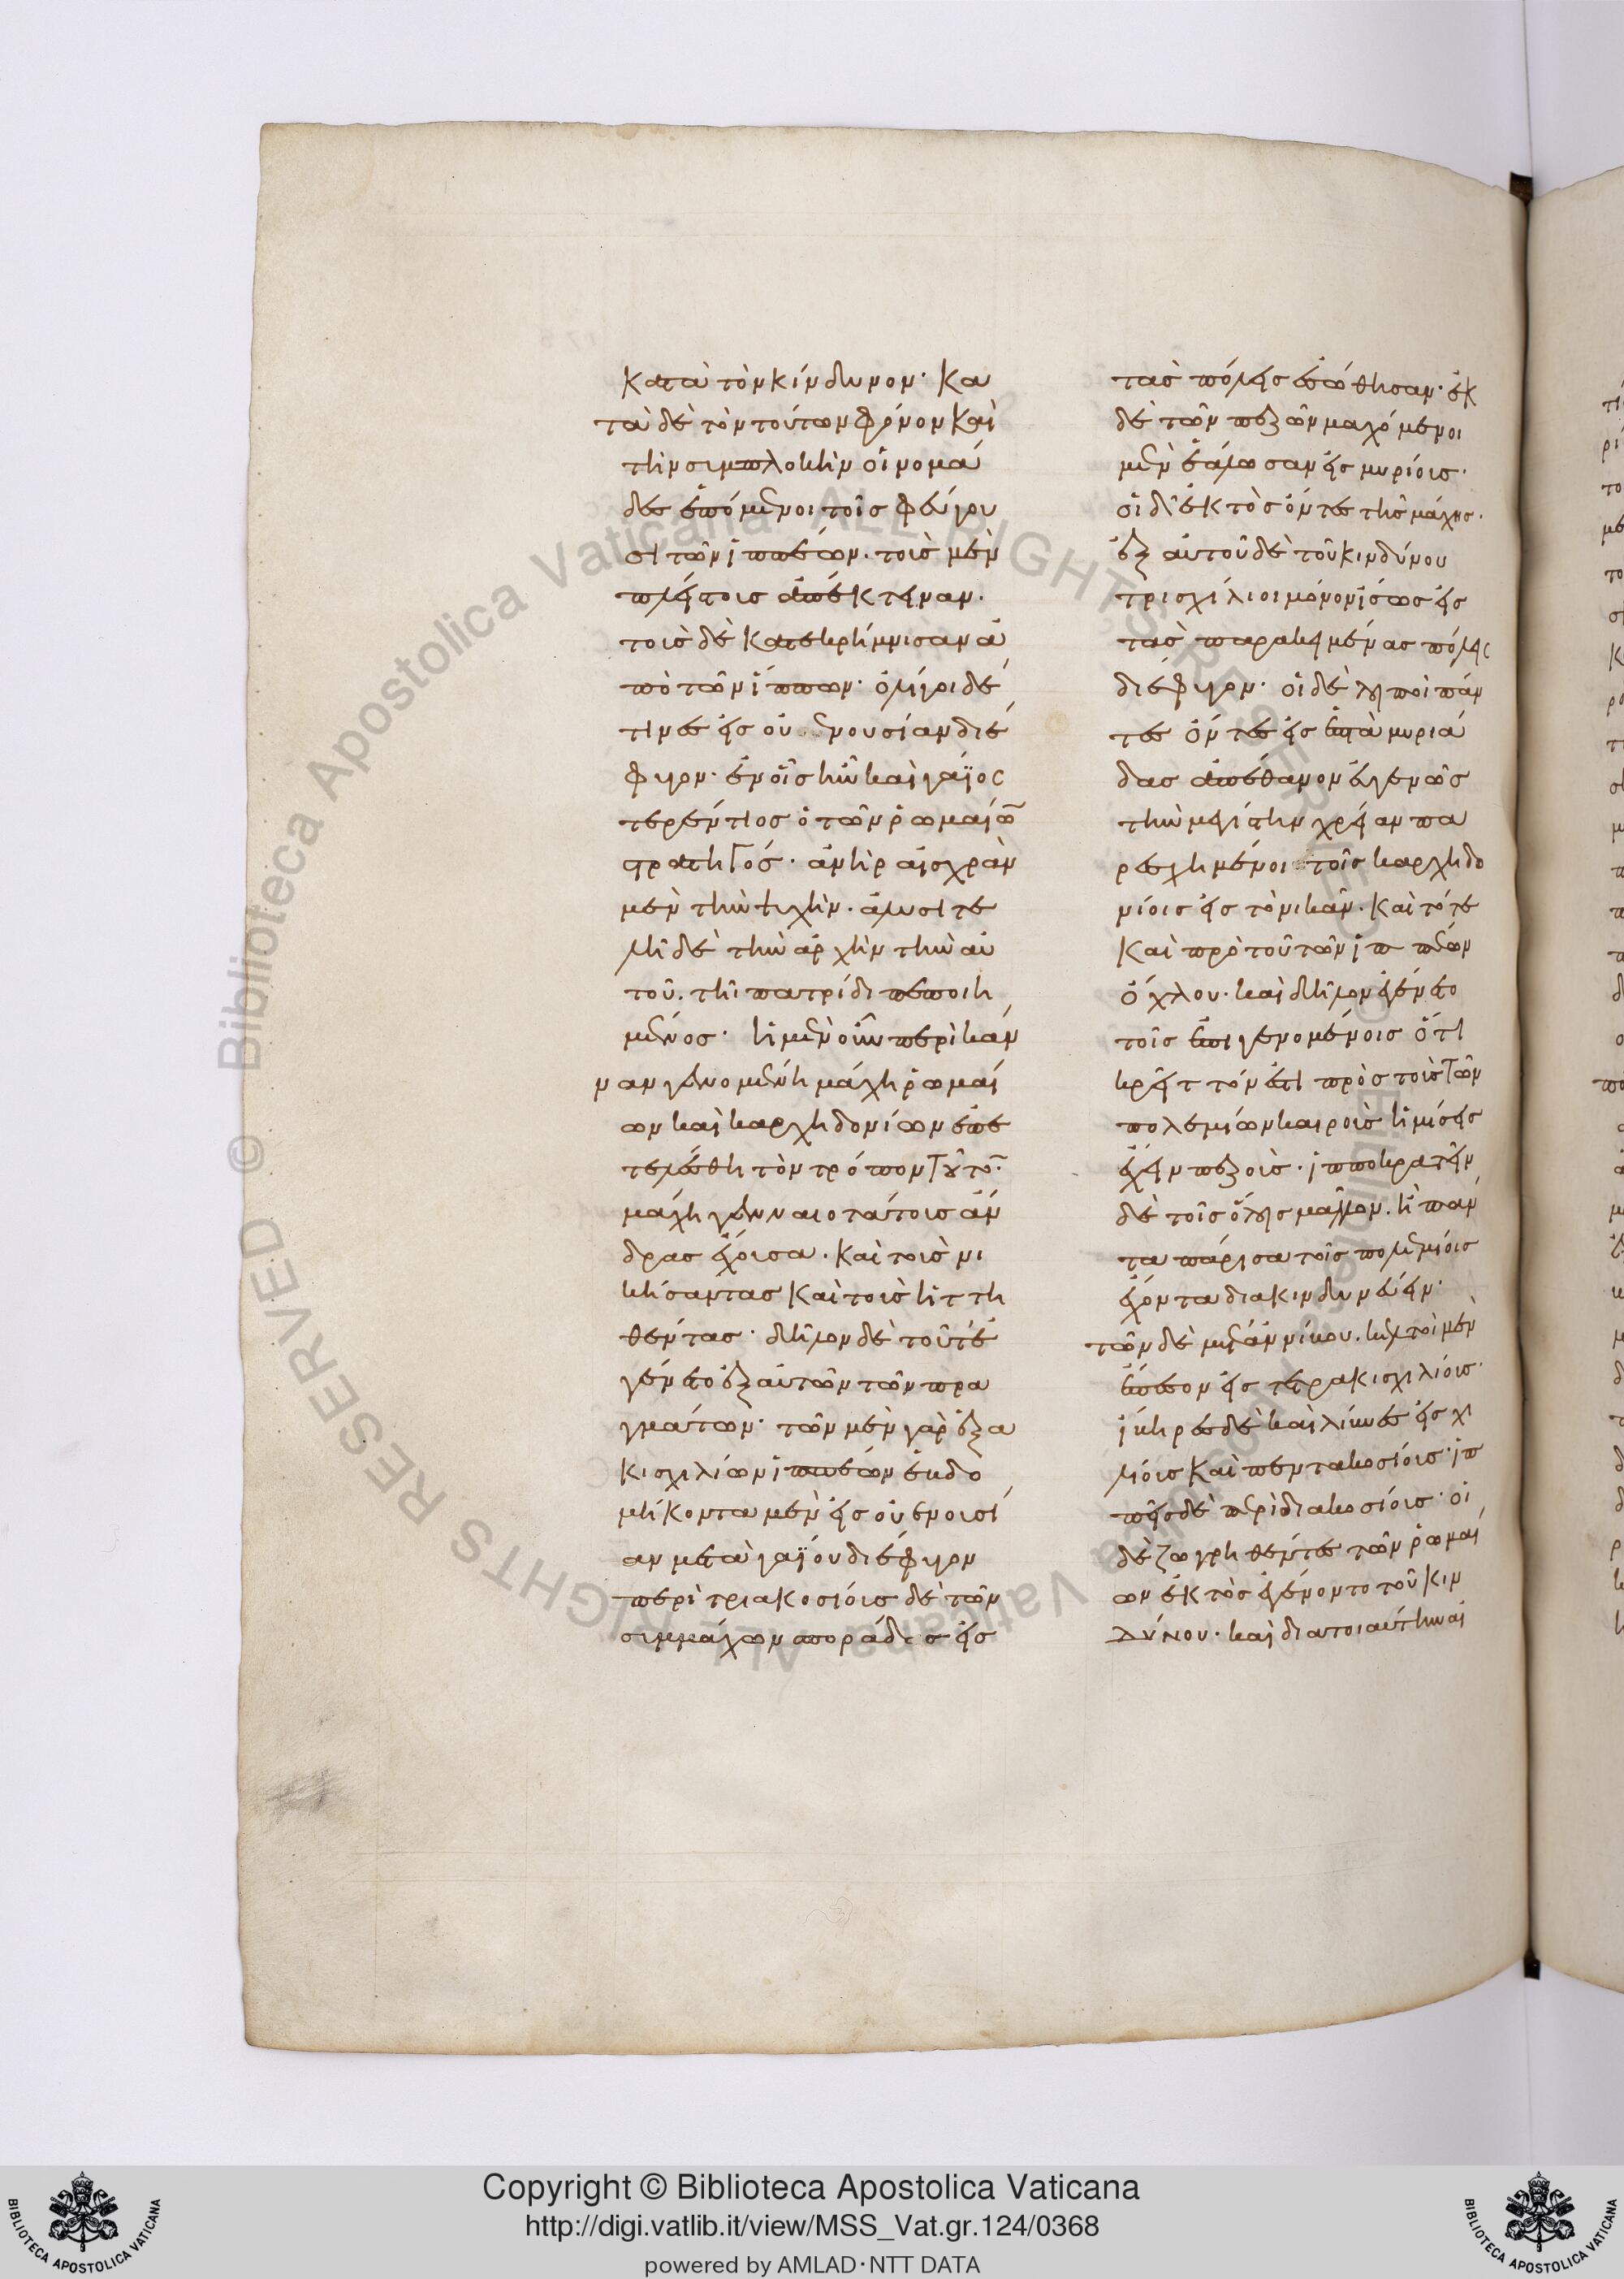 κατὰ τὸν κίνδυνον· κα
τὰ δὲ τὸν τούτων φόνον καὶ
τὴν συμπλοκὴν οἱ νομά
δες ἑπόμενοι τοῖς φεύγου
σι τῶν ἱππέων. τοὺς μὲν
πλείστους ἀπέκτειναν.
τοὺς δὲ κατεκρήμνισαν ἀ
πὸ τῶν ἵππων· ὀλίγοι δέ
τινες εἰς οὐενουσίαν διέ
φυγον· ἐν οἷς ἦν καὶ γάϊος
τερέντιος ὁ τῶν ῥωμαίων
στρατηγός· ἀνὴρ αἰσχρὰν
μὲν τὴν ψυχὴν. ἀλυσιτε
λῆ δὲ τὴν ἀρχὴν τὴν αὐ
τοῦ. τῆι πατρίδι πεποιη
μένος· ἡ μὲν οὖν περὶ κάν
ναν γενομένη μάχη ῥωμαί
ων καὶ καρχηδονίων ἐπε
τελέσθη τὸν τρόπον τοῦτον·
μάχη γενναιοτάτους ἄν
δρας ἔχουσα. καὶ τοὺς νι
κήσαντας καὶ τοὺς ἡττη
θέντας· δῆλον δὲ τοῦτ' ἐ
γένετο ἐξ αὐτῶν τῶν πρα
γμάτων· τῶν μὲν γὰρ ἑξα
κισχιλίων ἱππέων ἑβδο
μήκοντα μὲν εἰς οὐενουσί
αν μετὰ γαΐου διέφυγον
περὶ τριακοσίους δὲ τῶν
συμμάχων σποράδες εἰς
τὰς πόλεις ἐσώθησαν· ἐκ
δὲ τῶν πεζῶν μαχόμενοι
μὲν ἑάλωσαν εἰς μυρίους·
οἱ δ' ἐκτὸς ὄντες τῆς μάχης·
ἐξ αὐτοῦ δὲ τοῦ κινδύνου
τρισχίλιοι μόνον ἴσως εἰς
τὰς παρακειμένας πόλεις
διέφυγον· οἱ δὲ λοιποὶ πάν
τες ὄντες εἰς ἑπτὰ μυριά
δας ἀπέθανον εὐγενῶς
τὴν μεγίστην χρείαν πα
ρεσχημένοι τοῖς καρχηδο
νίοις εἰς τὸ νικᾶν. καὶ τότε
καὶ πρὸ τοῦ τῶν ἱππέων
ὄχλου· καὶ δῆλον ἐγένετο
τοῖς ἐπιγενομένοις ὅτι
κρεῖττόν ἐστι πρὸς τοὺς τῶν
πολεμίων καιροὺς ἡμίσεις
ἔχειν πεζοὺς· ἱπποκρατεῖν
δὲ τοῖς ὅλοις μᾶλλον. ἢ πάν
τα πάρισα τοῖς πολεμίοις
ἔχοντα διακινδυνεύειν·
τῶν δὲ μετ' ἀννίβου. κελτοὶ μὲν
ἔπεσον εἰς τετρακισχιλίους·
ἴβηρες δὲ καὶ λίβυες εἰς χι
λίους καὶ πεντακοσίους· ἱπ
πεῖς δὲ περὶ διακοσίους· οἱ
δὲ ζωγρηθέντες τῶν ῥωμαί
ων ἐκτὸς ἐγένοντο τοῦ κιν
δύνου· καὶ διὰ τοιαύτην αἰ
Copyright © Biblioteca Apostolica Vaticana
http://digi.vatlib.it/view/MSS_Vat.gr.124/0368
powered by AMLAD·NTT DATA